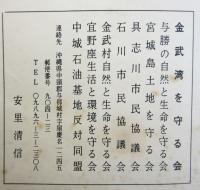 金武湾を守る会
与勝の自然と生命を守る会
宮城島土地を守る会
具志川市民協議会
石川市民協議会
金武村自然と生命を守る会
宜野座生活と環境を守る会
中城石油基地反対同盟
連絡先 沖縄県中頭郡与那城村字屋慶名一一二四五
郵便番号 九〇四―二三
TEL 〇九八九七―三―二三〇八
安里清信